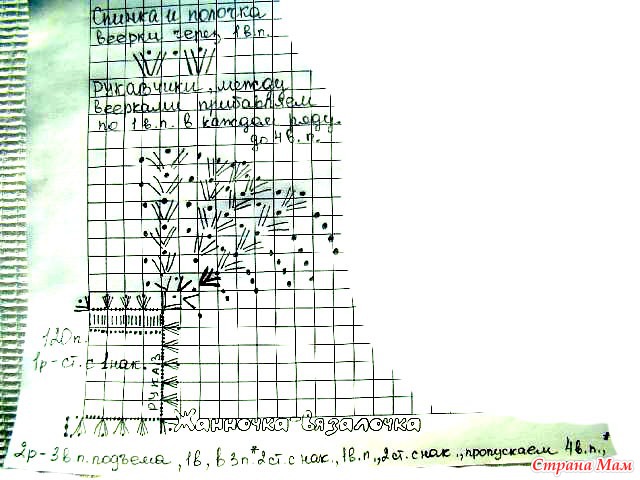 Спинка и полочка
веерки через 1в.п.
Рукавчики, между
веерками прибавляем
по 1в.п. в каждом ряду
до 4в.п.
120п.
1р-ст.с 1нак.
РУКАЗ
Манночка-вязалочка
2р-3в п. подъема, 1в, в 3п*2ст.с нак., 1в.п., 2ст.с нак., пропускаем 4в.п.,*
Страна Мам